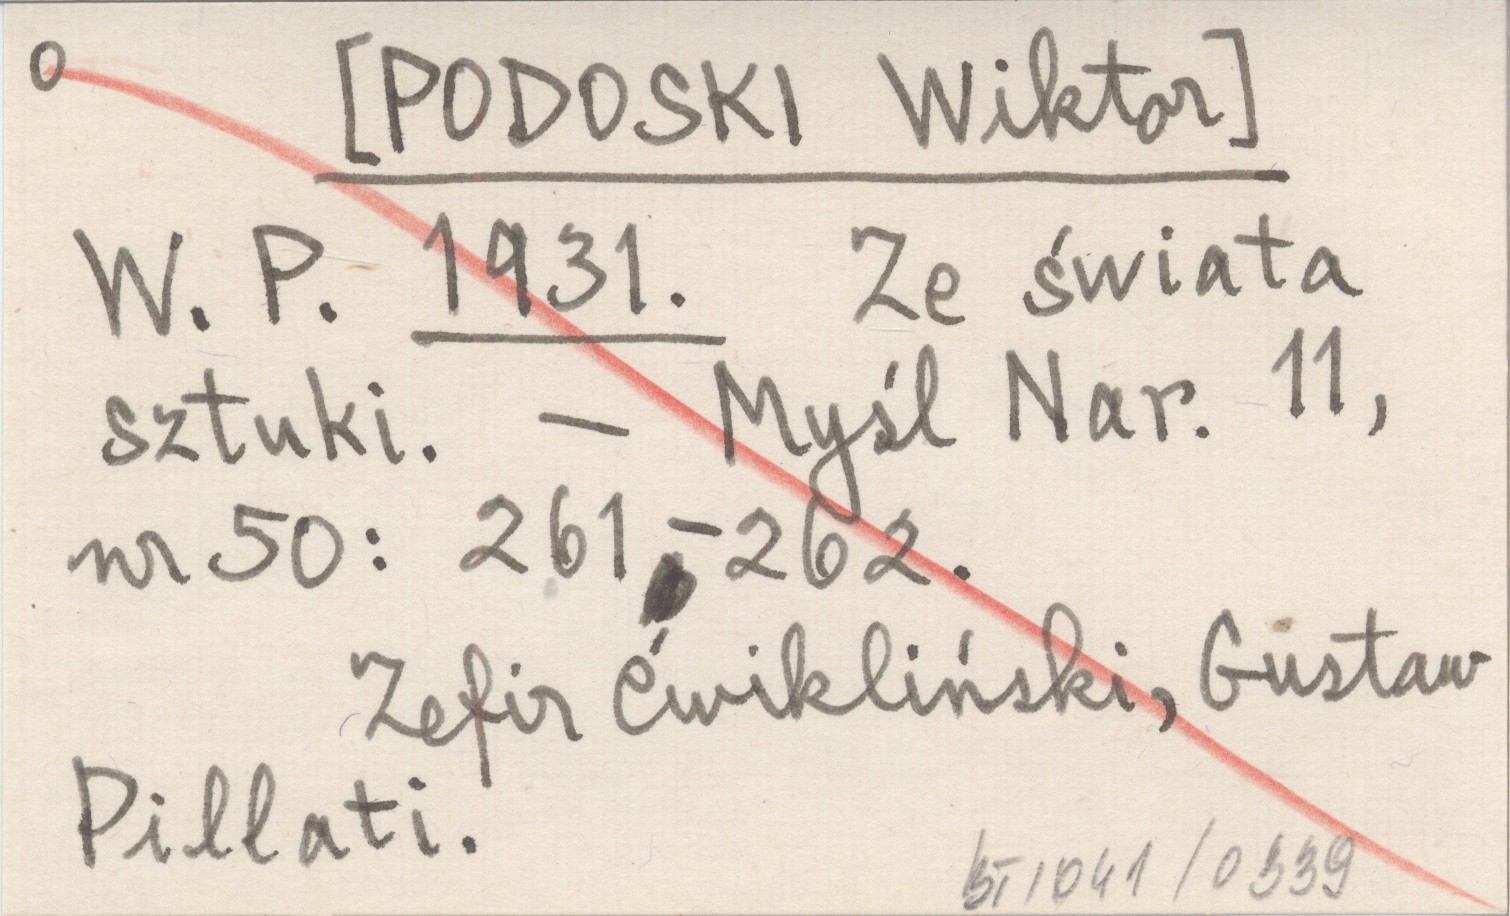 o [PODOSKI Wiktor]
W. P. 1931. Ze świata
sztuki. — Myśl Nar. 11,
nr 50: 261-262.
Zefir Ćwikliński, Gustaw
Pillati.
/041/0339